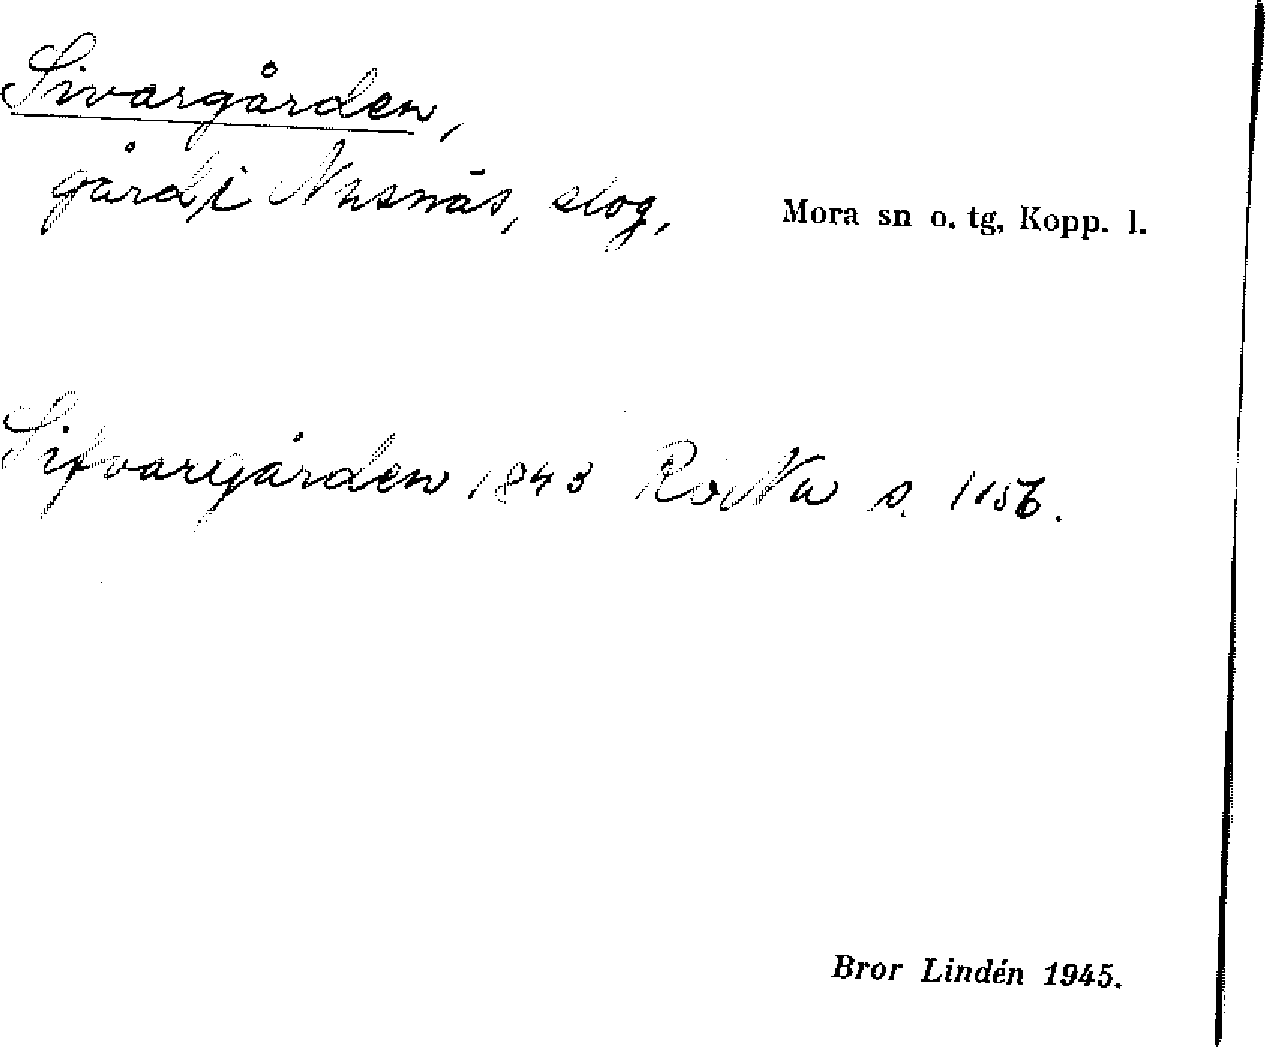 Sivargården,
gård i Nusnäs, slog, Mora sn o. tg, Kopp. l.
Sifvargården 1843 s. 1156.
Bror Lindén 1945.